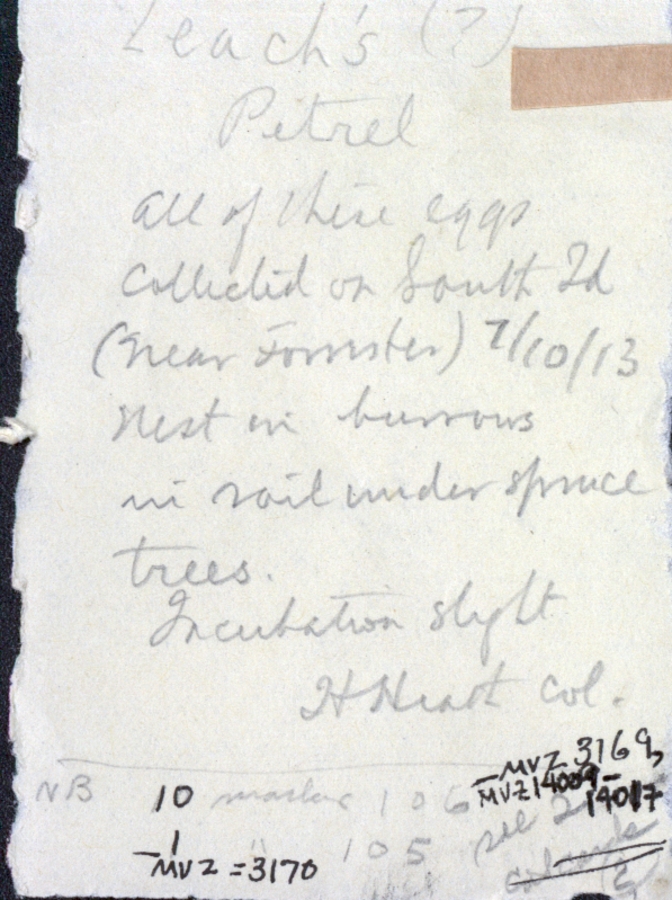 Leach's (?)
Petrel
all of these eggs
collected on South Id
(near Forrester) 7/10/13
Nest in burrows
in soil under spruce
trees.
Incubation slight
H Heath Col.
MVZ 3169,
NB 10 106 MVZ 14009-
14017
1 " 105 see
MVZ = 3170